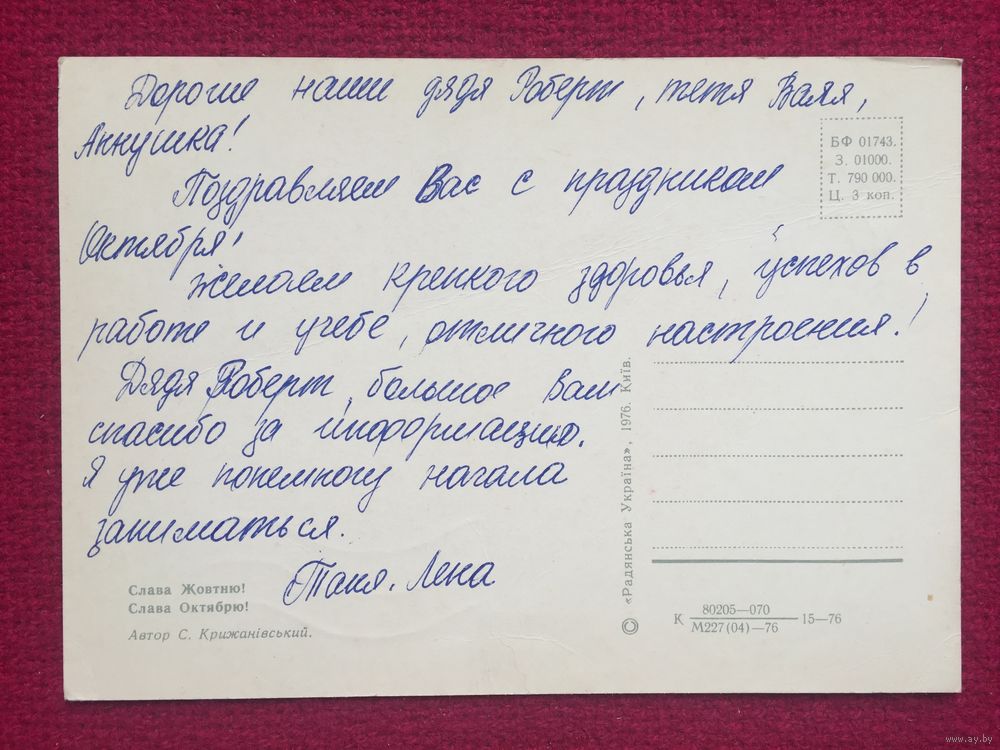 Дорогие наши дядя Роберт, тетя Валя,
Аннушка!
Поздравляем Вас с праздником
Октября!
Желаем крепкого здоровья, успехов в
работе и учебе, отличного настроения!
Дядя Роберт, большое Вам
спасибо за информацию.
Я уже понемногу начала
заниматься.
Таня, Лена
БФ 01743.
З. 01000.
Т. 790 000.
Ц. 3 коп.
Слава Жовтню!
Слава Октябрю!
Автор С. Крижанівський.
© «Радянська Україна», 1976. Київ.
К 80205—070
М227(04)—76 15—76
www.ay.by